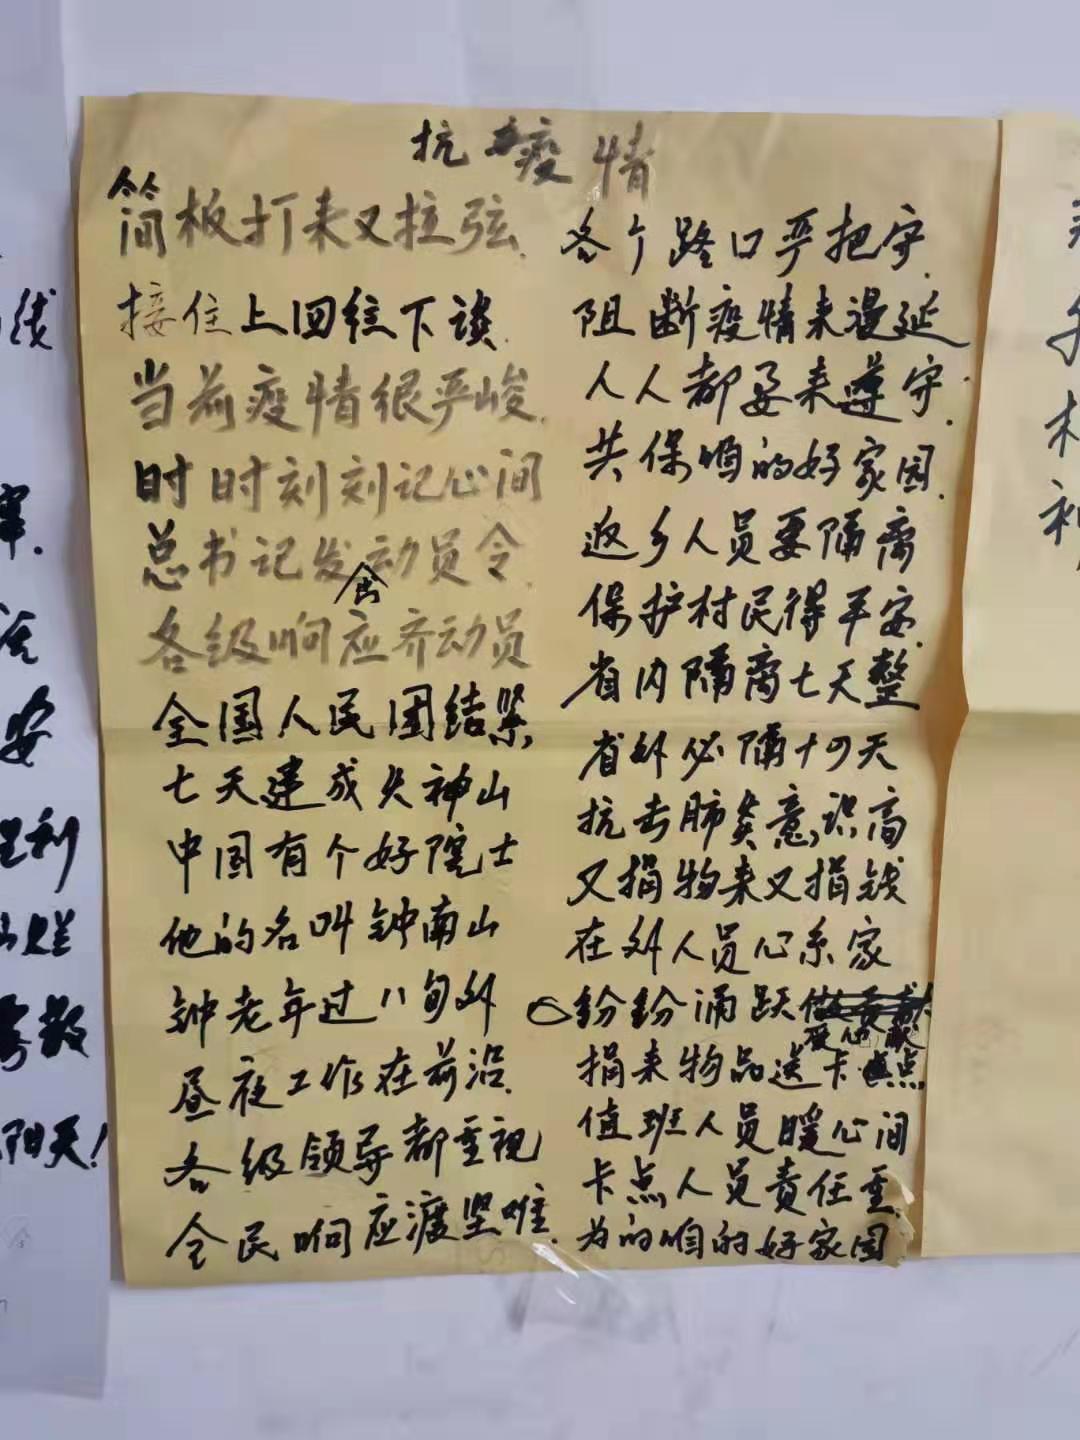 抗疫情
简板打来又拉弦
接住上回往下谈
当前疫情很严峻
时时刻刻记心间
总书记发动员令
各级响应齐动员
全国人民团结紧
七天建成火神山
中国有个好院士
他的名叫钟南山
钟老年过八旬外
昼夜工作在前沿
各级领导都重视
全民响应渡坚难
各个路口严把守
阻断疫情来漫延
人人都要来遵守
共保咱的好家园
返乡人员要隔离
保护村民得平安
省内隔离七天整
省外必隔十四天
抗击肺炎意识高
又捐物来又捐钱
在外人员心系家
纷纷涌跃爱心献
捐来物品送卡点
值班人员暖心间
卡点人员责任重
为的咱的好家园
线
安
利
散
阳天!